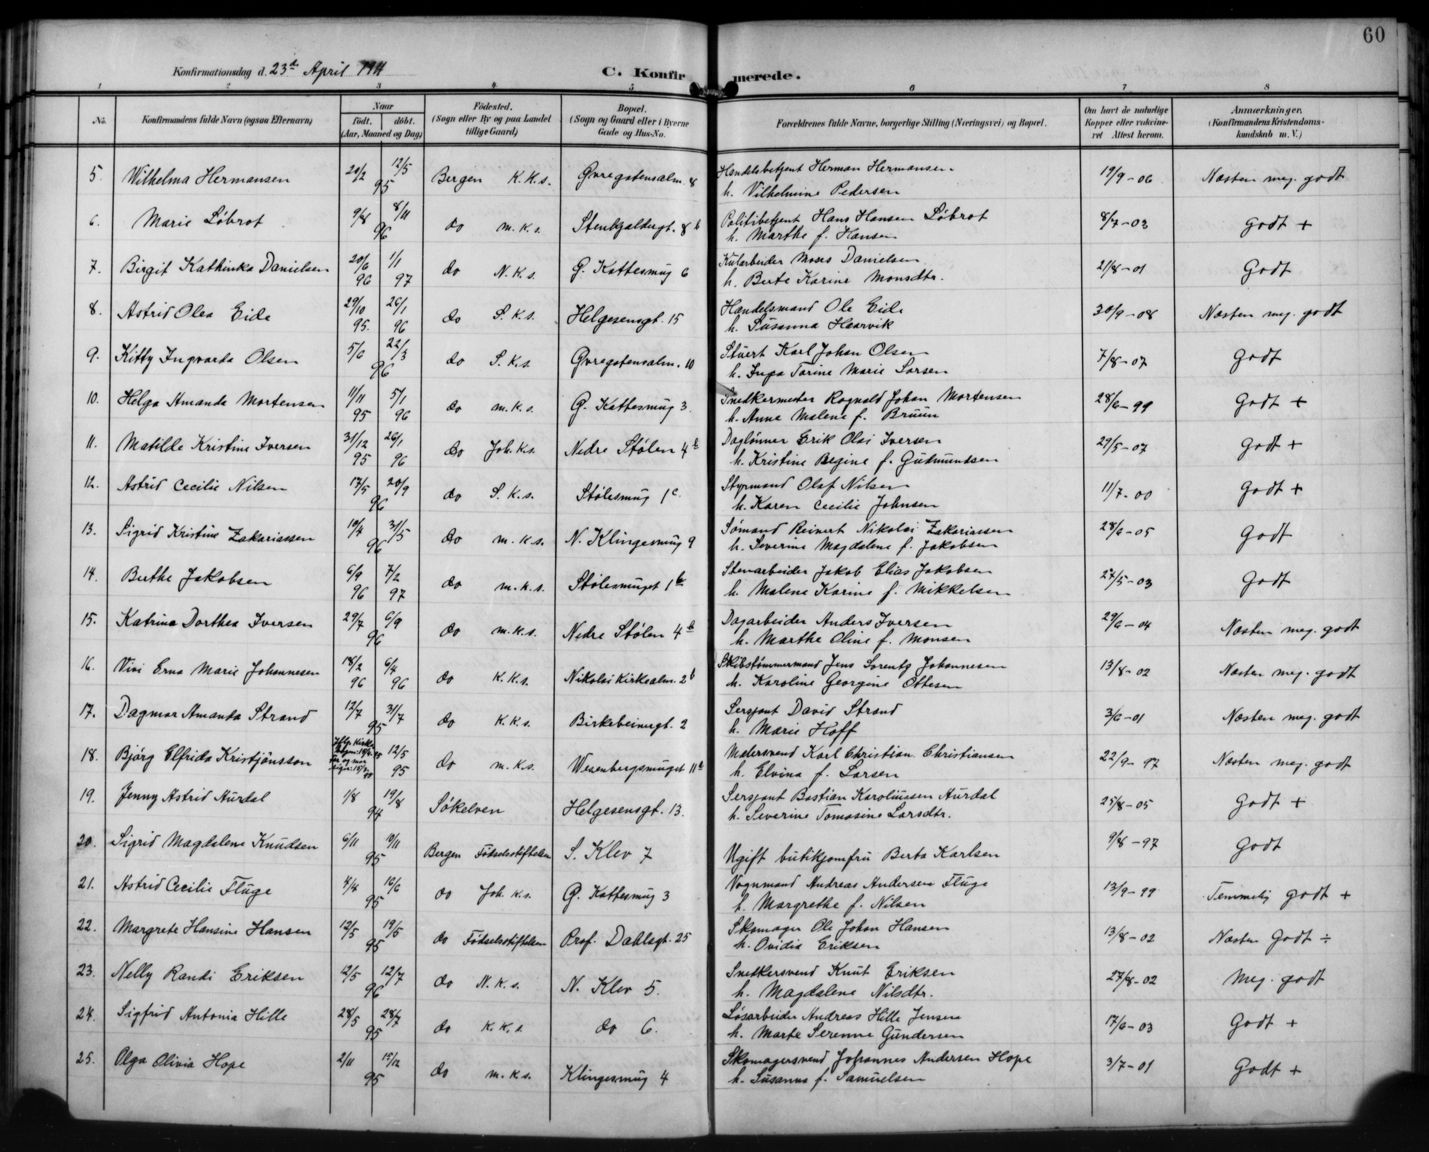 60
Konfirmationsdag d. 23de April 1911
C. Konfirmerede.
1 2 3 4 5 6 7 8
No. Konfirmandens fulde Navn (ogsaa Efternavn) Naar født. døbt. (Aar, Maaned og Dag) Fødested. (Sogn eller By og paa Landet tillige Gaard) Bopæl. (Sogn og Gaard eller i Byerne Gade og Hus-No. Forældrenes fulde Navne, borgerlige Stilling (Næringsvei) og Bopæl. Om havt de naturlige Kopper eller vakcineret. Attest herom. Anmærkninger. (Konfirmandens Kristendomskundskab m. V.)
5. Wilhelma Hermansen 20/2 12/5 95 Bergen K. K. s. Øvregatensalm. 8 Handelsbetjent Herman Hermansen 19/9-06 Næsten meg. godt
h. Vilhelmine Pedersen
6. Marie Løbrot 9/8 8/11 96 do m. k. s. Stenkjeldergt. 8 b Politibetjent Hans Hansen Løbrot 8/7-03 Godt +
h. Marthe f. Hansen
7. Birgit Kathinka Danielsen 20/6 96 1/1 97 do N. K. s. G. Kattesmug 6 Kularbeider Moses Danielsen 2/8-01 Godt
h. Berte Karine Monsdtr.
8. Astrid Olea Eide 29/10 95. 26/1 96 do S. K. s. Helgesensgt. 15 Handelsmand Ole Eide 30/9-08 Næsten meg. godt
h. Susanna Haarvik
9. Kitty Ingvarda Olsen 5/6 22/3 96 do S. K. s. Øvregatensalm. 10 Stuert Karl Johan Olsen 7/8-07 Godt
h. Inga Torine Marie Larsen
10. Helga Amanda Mortensen 11/11 95 5/1 96 do m. k. s. G. Kattesmug 3. Snedkermester Rognald Johan Mortensen 28/6-99 Godt +
h. Anne Malene f. Bruun
11. Matilde Kristine Iversen 31/12 95 26/1 96 do Joh. K. s. Nedre Stølen 4 b Daglønner Erik Olai Iversen 29/5-07 Godt +
h. Kristine Regine f. Gudmundsen
12. Astrid Cecilie Nilsen 17/5 20/9 96 do S. K. s. Stølesmug 1 c. Styrmand Olaf Nilsen 11/7-00 Godt +
h. Karen Cecilie Johnsen
13. Sigrid Kristine Zakariassen 19/4 31/5 96 do m. k. s. N. Klingesmug 9 Sømand Reinert Nikolai Zakariassen 28/6-05 Godt
h. Severine Magdalene f. Jakobsen
14. Berthe Jakobsen 6/9 96 7/2 97 do m. k. s. Stølesmuget 1 b Stenarbeider Jakob Elias Jakobsen 27/5-03 Godt
h. Malene Karine f. Mikkelsen
15. Katrine Dorthea Iversen 29/7 6/9 96 do m. k. s. Nedre Stølen 4 b Dagarbeider Anders Iversen 29/6-04 Næsten meg. godt
h. Marthe Oline f. Monsen
16. Vivi Erna Marie Johannesen 18/2 96 6/4 96 do K. K. s. Nikolai Kirkealm. 2 b Skibstømmermand Jens Lorentz Johannesen 13/8-02 Næsten meg. godt
h. Karoline Georgine Ottesen
17. Dagmar Amanda Strand 12/7 31/7 95 do K. K. s. Birkebeinergt. 2 Sersjant David Strand 3/6-01 Næsten meg. godt
h. Marie Hoff
18. Bjørg Elfrida Kristjánsson 12/5 95 do m. k. s. Wesenbergsmuget 11 b Malersvend Karl Christian Christiansen 22/9-97 Næsten meg. godt
h. Elvina f. Larsen
19. Jenny Astrid Aurdal 1/8 19/8 94 Søkelven Helgesensgt. 13. Sersjant Bastian Karolinusen Aurdal 25/8-05 Godt +
h. Severine Tomasine Larsdtr.
20. Sigrid Magdalene Knudsen 6/11 9/11 95 Bergen Fødselsstiftelsen S. Klev 7 Ugift butikjomfru Berta Karlsen 9/8-97 Godt
21. Astrid Cecilie Fluge 4/4 16/6 95 do Joh. K. s. G. Kattesmug 3 Vognmand Andreas Andersen Fluge 13/9-99 Temmelig godt +
h. Margrethe f. Nilsen
22. Margrete Hansine Hansen 12/5 19/5 95 do Fødselsstiftelsen Prof. Dahlsgt. 25 Skomager Ole Johan Hansen 13/8-02 Næsten Godt ÷
h. Ovidia Eriksen
23. Nelly Randi Eriksen 12/5 12/7 96 do N. K. s. N. Klev 5. Snedkersvend Knut Eriksen 27/8-02 Meg. godt
h. Magdalene Nilsdtr.
24. Sigfrid Antonia Hille 28/5 28/7 95 do K. K. s do 6. Løsarbeider Andreas Hille Jensen 17/6-03 Godt +
h. Marte Serenne Gundersen
25. Olga Olivia Hope 2/11 15/12 95 do m. k. s. Klingesmug 4 Skomagersvend Johannes Andersen Hope 3/7-01 Godt +
h. Susanna f. Samuelsen